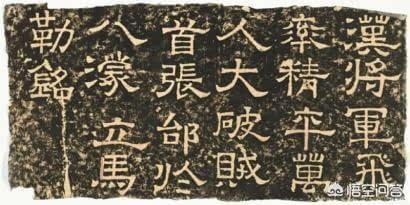 漢將軍飛
率精卒萬
人大破賊
首張郃於
八濛立馬
勒銘
悟空问答